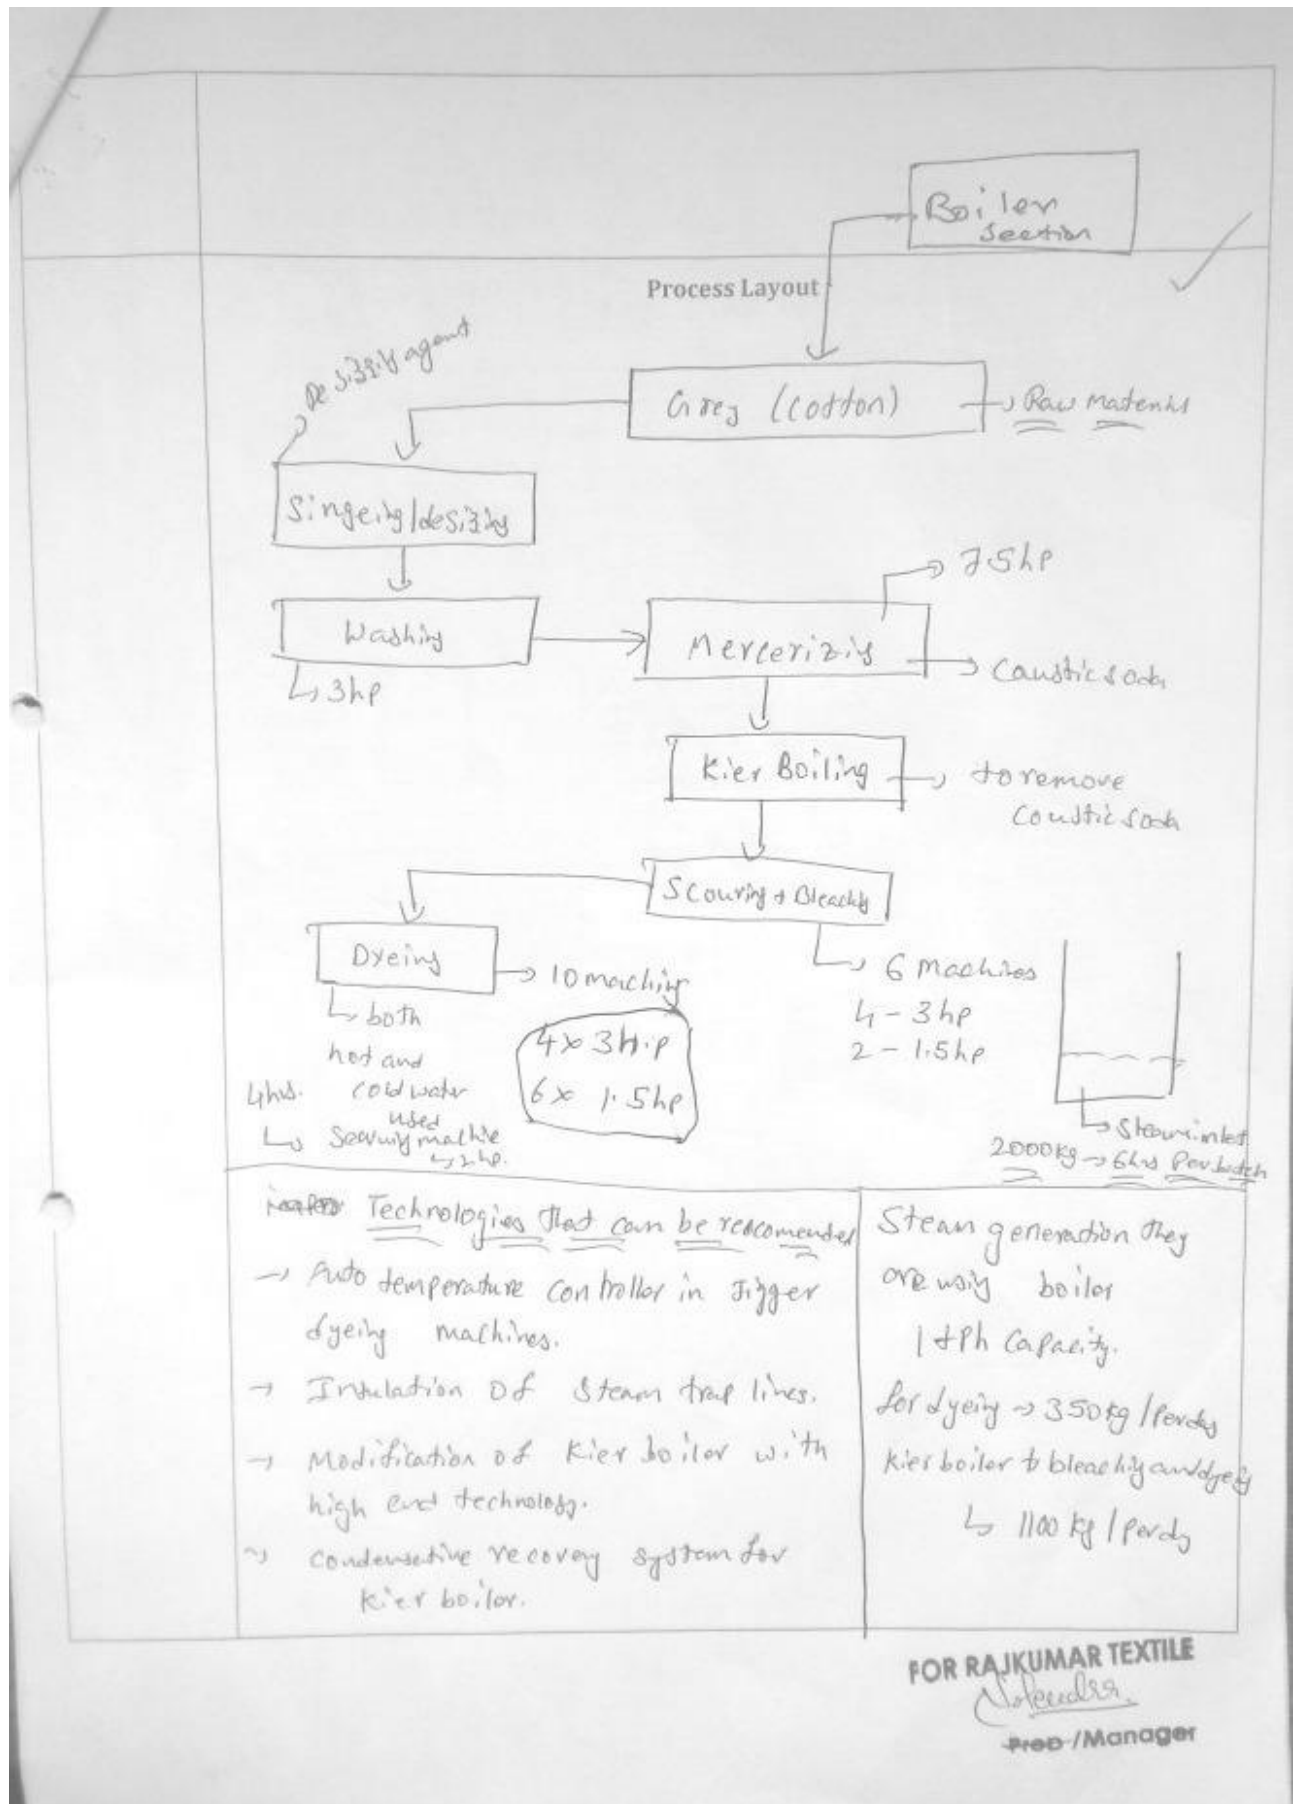 Boiler
Section
Process Layout
Desizing agent
Grey (cotton)
Raw material
Singeing/desizing
7.5hp
Washing
Mercerizing
3hp
Caustic soda
Kier Boiling
to remove
Coustic soda
Scouring + Bleaching
Dyeing
10 machine
6 machines
both
4 - 3hp
hot and
4 x 3H.P
2 - 1.5hp
cold water
6 x 1.5hp
4hrs.
used
machie
2hp.
Steam inlet
2000kg → 6hrs Per batch
Technologies that can be reacomended
→ Auto temperature controller in Jigger
dyeing machines.
→ Insulation of Steam trap lines.
→ Modification of Kier boiler with
high end technology.
→ Condensative recovery system for
Kier boiler.
Steam generation they
are using boiler
1 tPh Capacity.
for dyeing → 350kg/Perday
Kier boiler to bleaching and dyeing
1100 kg/Perday
FOR RAJKUMAR TEXTILE
Prop /Manager